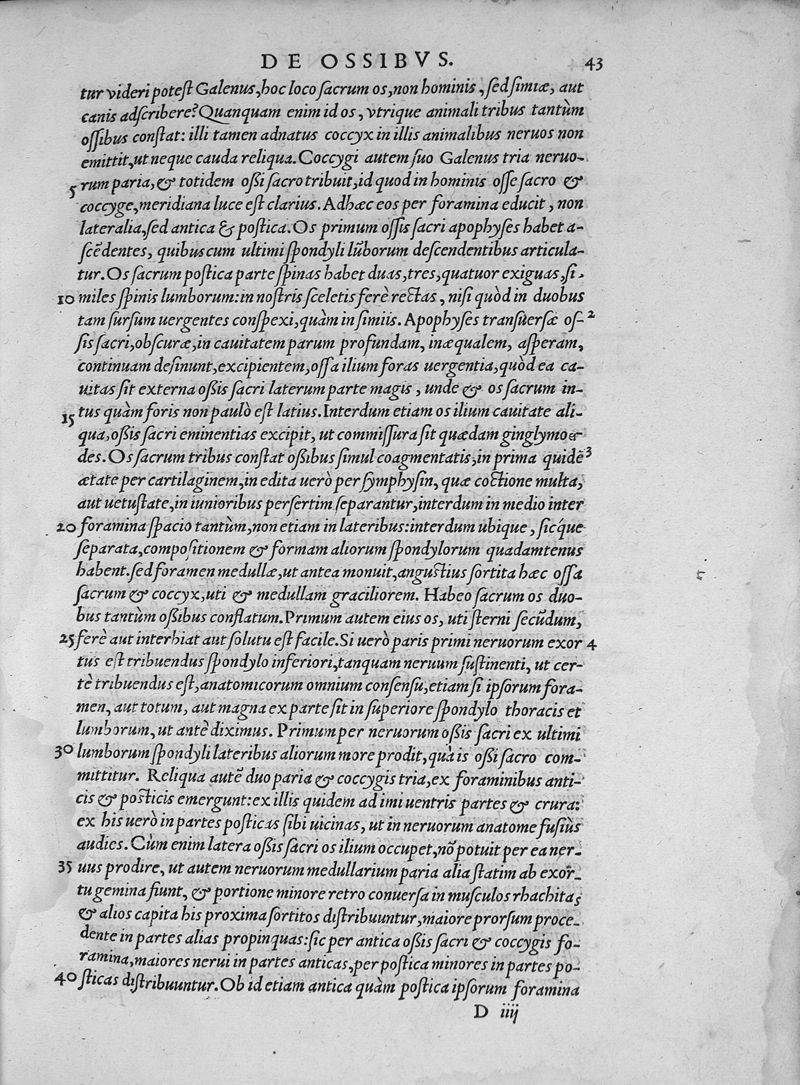 DE OSSIBVS. 43
tur videri potest Galenus, hoc loco sacrum os, non hominis, sed simiæ, aut
canis adscribere? Quanquam enim id os, vtrique animali tribus tantùm
ossibus constat: illi tamen adnatus coccyx in illis animalibus neruos non
emittit, ut neque cauda reliqua. Coccygi autem suo Galenus tria neruo-
5 rum paria, & totidem ossi sacro tribuit, id quod in hominis osse sacro &
coccyge, meridiana luce est clarius. Adhæc eos per foramina educit, non
lateralia, sed antica & postica. Os primum ossis sacri apophyses habet a-
scẽdentes, quibus cum ultimi spondyli lũborum descendentibus articula-
tur. Os sacrum postica parte spinas habet duas, tres, quatuor exiguas, si-
10 miles spinis lumborum: in nostris sceletis ferè rectas, nisi quòd in duobus
tam sursum uergentes conspexi, quàm in simiis. Apophyses transuersæ os- 2
sis sacri, obscuræ, in cauitatem parum profundam, inæqualem, asperam,
continuam desinunt, excipientem, ossa ilium foras uergentia, quòd ea ca-
uitas sit externa ossis sacri laterum parte magis, unde & os sacrum in-
15 tus quàm foris non paulò est latius. Interdum etiam os ilium cauitate ali-
qua, ossis sacri eminentias excipit, ut commissura sit quædam ginglymoei-
des. Os sacrum tribus constat ossibus simul coagmentatis, in prima quidẽ 3
ætate per cartilaginem, in edita uerò per symphysin, quæ coctione multa,
aut uetustate, in iunioribus persertim separantur, interdum in medio inter
20 foramina spacio tantùm, non etiam in lateribus: interdum ubique, sicq́ue
separata, compositionem & formam aliorum spondylorum quadamtenus
habent. sed foramen medullæ, ut antea monuit, angustius sortita hæc ossa
sacrum & coccyx, uti & medullam graciliorem. Habeo sacrum os duo-
bus tantùm ossibus conflatum. Primum autem eius os, uti sterni secũdum,
25 ferè aut interhiat aut solutu est facile. Si uerò paris primi neruorum exor 4
tus est tribuendus spondylo inferiori, tanquam neruum sustinenti, ut cer-
tè tribuendus est, anatomicorum omnium consensu, etiam si ipsorum fora-
men, aut totum, aut magna ex parte sit in superiore spondylo thoracis et
lumborum, ut antè diximus. Primum per neruorum ossis sacri ex ultimi
30 lumborum spondyli lateribus aliorum more prodit, quà is ossi sacro com-
mittitur. Reliqua autẽ duo paria & coccygis tria, ex foraminibus anti-
cis & posticis emergunt: ex illis quidem ad imi uentris partes & crura:
ex his uerò in partes posticas sibi uicinas, ut in neruorum anatome fusiùs
audies. Cùm enim latera ossis sacri os ilium occupet, nõ potuit per ea ner-
35 uus prodire, ut autem neruorum medullarium paria alia statim ab exor-
tu gemina fiunt, & portione minore retro conuersa in musculos rhachitas
& alios capita his proxima sortitos distribuuntur, maiore prorsum proce-
dente in partes alias propinquas: sic per antica ossis sacri & coccygis fo-
ramina, maiores nerui in partes anticas, per postica minores in partes po-
40 sticas distribuuntur. Ob id etiam antica quàm postica ipsorum foramina
D iiij